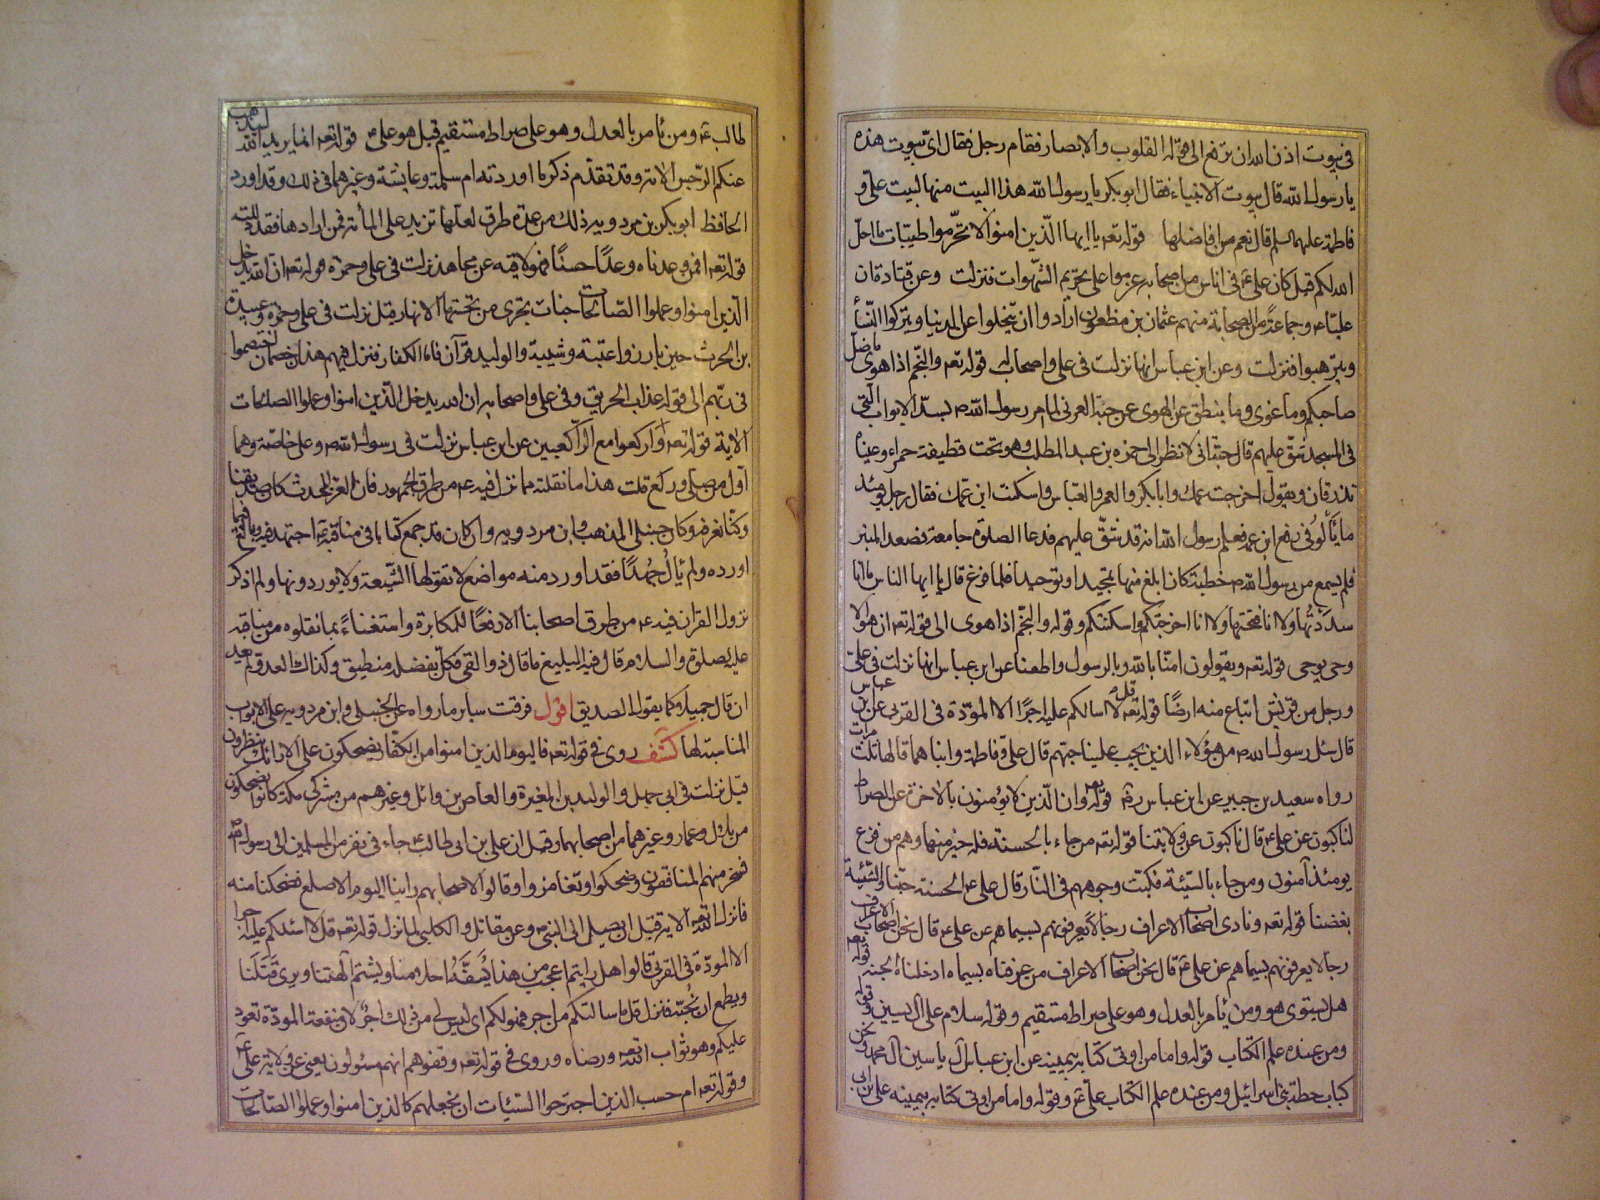 في بيوت اذن الله ان ترفع الى قوله القلوب والابصار فقام رجل فقال اي بيوت هذه
يا رسول الله قال بيوت الانبياء فقال ابو بكر يا رسول الله هذا البيت منها لبيت علي و
فاطمة عليهما السلم قال نعم من افاضلها قوله تعه يا ايها الذين امنوا لا تحرموا طيبات ما احل
الله لكم قيل كان علي ع في اناس من اصحابه عزموا على تحريم الشهوات فنزلت وعن قتادة ان
عليا ع وجماعة من الصحابة منهم عثمان بن مظعون ارادوا ان يتخلوا عن الدنيا ويتركوا النساء
ويترهبوا فنزلت وعن ابن عباس انها نزلت في علي واصحابه قوله تعه والنجم اذا هوى ما ضل
صاحبكم وما غوى وما ينطق عن الهوى عن حبة العرني لما امر رسول الله ص بسد الابواب التي
في المسجد شق عليهم قال حبة اني لانظر الى حمزة بن عبد المطلب وهو تحت قطيفة حمراء وعيناه
تذرفان ويقول اخرجت عمك وابا بكر والعمر والعباس واسكنت ابن عمك فقال رجل يومئذ
ما يألو في رفع ابن عمه فعلم رسول الله انه قد شق عليهم فدعا الصلوة جامعة فصعد المنبر
فلم يسمع من رسول الله ص خطبة كان ابلغ منها تمجيدا وتوحيدا فلما فرغ قال يا ايها الناس ما انا
سددتها ولا انا فتحتها ولا انا اخرجتكم واسكنتكم وقوله والنجم اذا هوى الى قوله تعه ان هو الا
وحي يوحى قوله تعه ويقولون امنا بالله وبالرسول واطعنا عن ابن عباس انها نزلت في علي
ورجل من قريش ابتاع منه ارضا قوله تعه قل لا اسالكم عليه اجرا الا المودة في القربى عن ابن عباس
قال سئل رسول الله ص من هؤلاء الذين يجب علينا حبهم قال علي وفاطمة وابناهما قالها ثلث مرات
رواه سعيد بن جبير عن ابن عباس رض قوله تعه وان الذين لا يؤمنون بالاخرة عن الصراط
لناكبون عن علي ع قال ناكبون عن ولايتنا قوله تعه من جاء بالحسنة فله خير منها وهم من فزع
يومئذ آمنون ومن جاء بالسيئة فكبت وجوههم في النار قال علي ع الحسنة حبنا والسيئة
بغضنا قوله تعه ونادى اصحاب الاعراف رجالا يعرفونهم بسيماهم عن علي ع قال نحن اصحاب الاعراف
رجالا يعرفونهم بسيماهم عن علي ع قال نحن اصحاب الاعراف من عرفناه بسيماه ادخلناه الجنة قوله تعه
هل يستوي هو ومن يأمر بالعدل وهو على صراط مستقيم وقوله سلام على آل يسين وقوله
ومن عنده علم الكتاب قوله واما من اوتي كتابه بيمينه عن ابن عباس آل ياسين آل محمد ونحن
كباب حطة بني اسرائيل ومن عنده علم الكتاب علي ع وقوله واما من اوتي كتابه بيمينه علي بن ابي
طالب ع ومن يأمر بالعدل وهو على صراط مستقيم قيل هو علي ع قوله تعه انما يريد الله ليذهب
عنكم الرجس الاية وقد تقدم ذكر ما اوردته ام سلمة وعايشة وغيرهما في ذلك وقد اورد
الحافظ ابو بكر بن مردويه ذلك من عدة طرق لعلها تزيد على المأة فمن ارادها فقد
قوله تعه افمن وعدناه وعدا حسنا فهو لاقيه عن مجاهد نزلت في علي وحمزة قوله تعه ان الله يدخل
الذين امنوا وعملوا الصالحات جنات تجري من تحتها الانهار قيل نزلت في علي وحمزة وعبيدة
بن الحرث حين بارزوا عتبة وشيبة والوليد فاما الكفار فنزل فيهم هذان خصمان اختصموا
في ربهم الى قوله عذاب الحريق وفي علي واصحابه ان الله يدخل الذين امنوا وعملوا الصالحات
الاية قوله تعه واركعوا مع الراكعين عن ابن عباس نزلت في رسول الله ص وعلي خاصة وهما
اول من صلى وركع قلت هذا ما نقلته مما نزل فيه ع من طرق الجمهور فان العز المحدث كان صديقنا
وكنا نعرفه وكان حنبلي المذهب وابن مردويه وان كان قد جمع كتابا في مناقبه ع اجتهد فيه وبالغ فيما
اورده ولم يأل جهدا فقد اورد منه مواضع لا تقولها الشيعة ولا يوردونها ولم اذكر
نزول القرآن فيه ع من طرق اصحابنا دفعا للمكابرة واستغناء بما نقلوه من مناقبه
عليه الصلوة والسلام قال فيه البليغ ما قال ذو العي فكل بفضله منطيق وكذاك العدو لم يعد
ان قال جميلا كما يقول الصديق اقول فرقت ساير ما رواه عن الحنبلي وابن مردويه على الابواب
المناسبة لها كشف روي في قوله تعه فاليوم الذين امنوا من الكفار يضحكون على الارائك ينظرون
قيل نزلت في ابي جهل والوليد بن المغيرة والعاص بن وائل وغيرهم من مشركي مكة كانوا يضحكون
من بلال وعمار وغيرهما من اصحابهما وقيل ان علي بن ابي طالب ع جاء في نفر من المسلمين الى رسول الله ص
فسخر منهم المنافقون وضحكوا وتغامزوا وقالوا لاصحابهم راينا اليوم الاصلع فضحكنا منه
فانزل الله تعه الاية قبل ان يصل الى النبي ص وعن مقاتل والكلبي لما نزل قوله تعه قل لا اسئلكم عليه اجرا
الا المودة في القربى قالوا هل رايتم اعجب من هذا يسفه احلامنا ويشتم آلهتنا ويرى قتلنا
ويطمع ان نحبه فنزل قل ما سالتكم من اجر فهو لكم اي ليس لي من ذلك اجر لان منفعة المودة تعود
عليكم وهو ثواب الله تعه ورضاه وروي في قوله تعه وقفوهم انهم مسئولون يعني عن ولاية علي ع
وقوله تعه ام حسب الذين اجترحوا السيئات ان نجعلهم كالذين امنوا وعملوا الصالحات